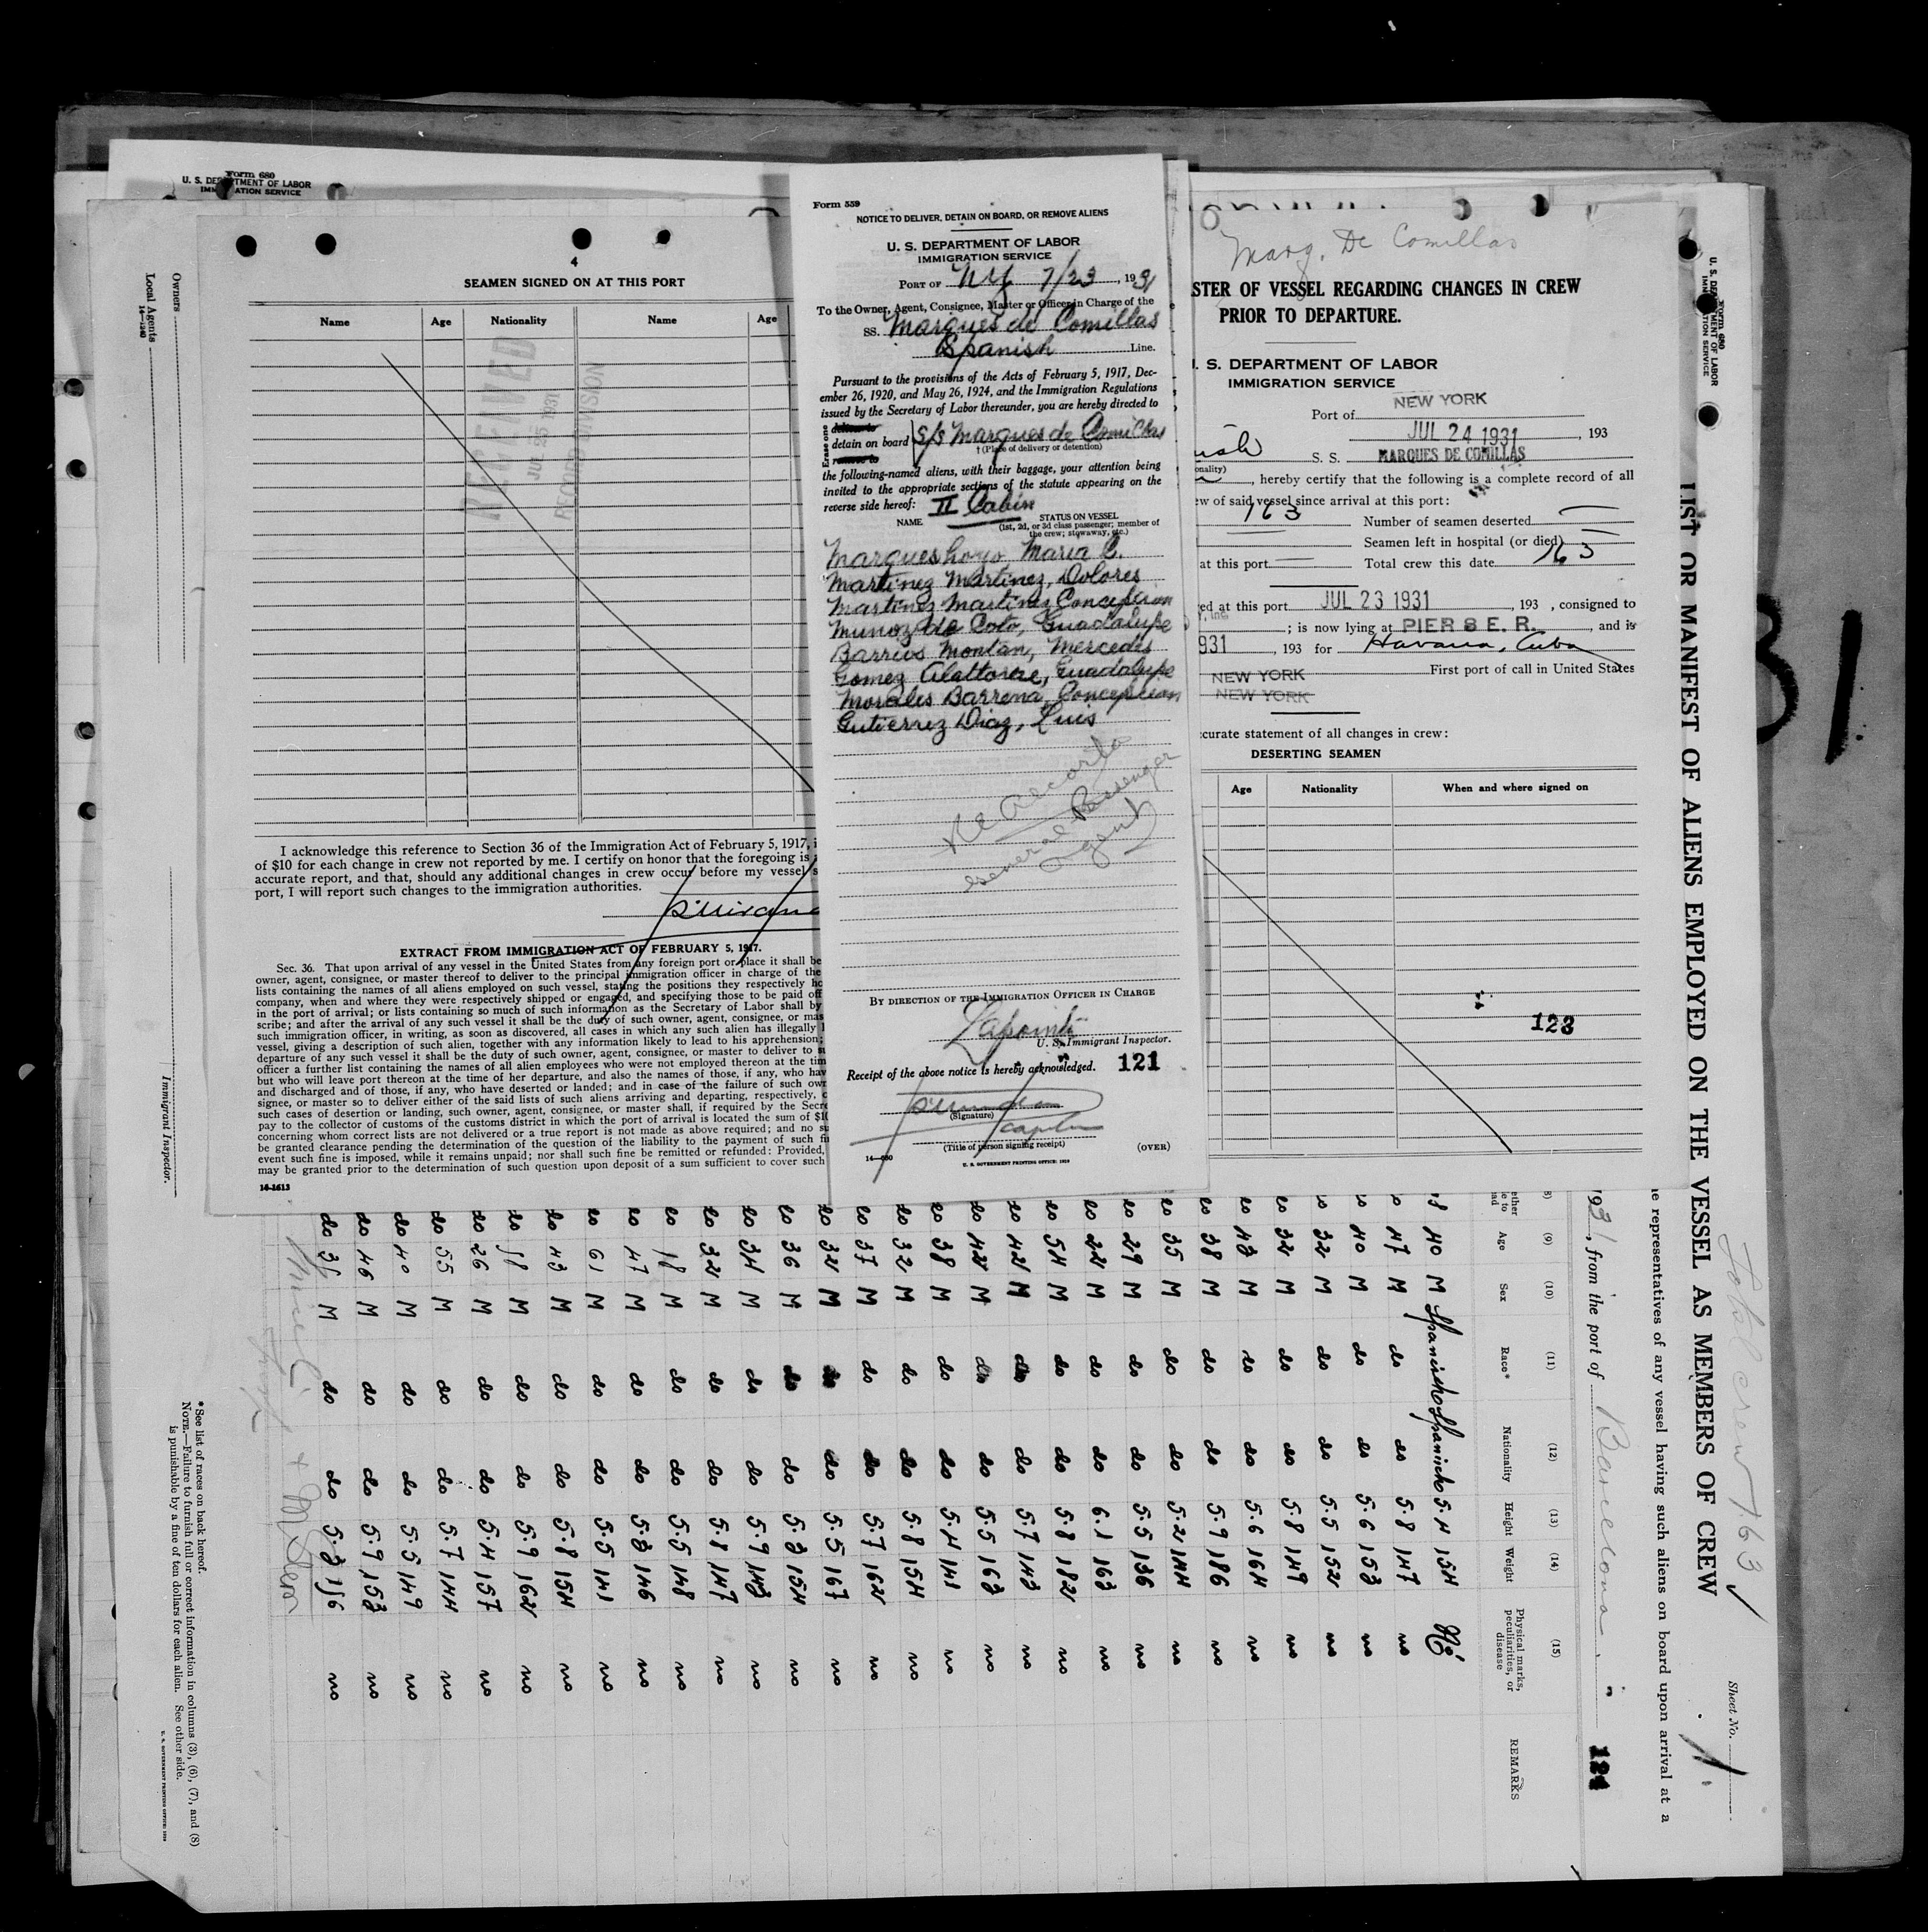 Form 680
U. S. DEPARTMENT OF LABOR
IMMIGRATION SERVICE
Owners
Local Agents
14—1240
Immigrant Inspector.
4
SEAMEN SIGNED ON AT THIS PORT
Name Age Nationality Name Age
RECEIVED
JUL 25 1931
RECORD DIVISION
I acknowledge this reference to Section 36 of the Immigration Act of February 5, 1917,
of $10 for each change in crew not reported by me. I certify on honor that the foregoing is
accurate report, and that, should any additional changes in crew occur before my vessel
port, I will report such changes to the immigration authorities.
EXTRACT FROM IMMIGRATION ACT OF FEBRUARY 5, 1917.
Sec. 36. That upon arrival of any vessel in the United States from any foreign port or place it shall be
owner, agent, consignee, or master thereof to deliver to the principal immigration officer in charge of the
lists containing the names of all aliens employed on such vessel, stating the positions they respectively
company, when and where they were respectively shipped or engaged, and specifying those to be paid off
in the port of arrival; or lists containing so much of such information as the Secretary of Labor shall by
scribe; and after the arrival of any such vessel it shall be the duty of such owner, agent, consignee, or
such immigration officer, in writing, as soon as discovered, all cases in which any such alien has illegally
vessel, giving a description of such alien, together with any information likely to lead to his apprehension;
departure of any such vessel it shall be the duty of such owner, agent, consignee, or master to deliver to
officer a further list containing the names of all alien employees who were not employed thereon at the
but who will leave port thereon at the time of her departure, and also the names of those, if any, who
and discharged and of those, if any, who have deserted or landed; and in case of the failure of such
signee, or master so to deliver either of the said lists of such aliens arriving and departing, respectively,
such cases of desertion or landing, such owner, agent, consignee, or master shall, if required by the
pay to the collector of customs of the customs district in which the port of arrival is located the sum of
concerning whom correct lists are not delivered or a true report is not made as above required; and no
be granted clearance pending the determination of the question of the liability to the payment of such
event such fine is imposed, while it remains unpaid; nor shall such fine be remitted or refunded: Provided,
may be granted prior to the determination of such question upon deposit of a sum sufficient to cover such
14-1613
Form 559
NOTICE TO DELIVER, DETAIN ON BOARD, OR REMOVE ALIENS
U. S. DEPARTMENT OF LABOR
IMMIGRATION SERVICE
PORT OF NY 7/23, 1931
To the Owner, Agent, Consignee, Master or Officer in Charge of the
SS. Marques de Comillas
Spanish Line.
Pursuant to the provisions of the Acts of February 5, 1917, Dec-
ember 26, 1920, and May 26, 1924, and the Immigration Regulations
issued by the Secretary of Labor thereunder, you are hereby directed to
Erase one
deliver to
detain on board S/S Marques de Comillas
remove to
† (Place of delivery or detention)
the following-named aliens, with their baggage, your attention being
invited to the appropriate sections of the statute appearing on the
reverse side hereof: II Cabin
NAME STATUS ON VESSEL
(1st, 2d, or 3d class passenger; member of
the crew; stowaway, etc.)
Marques hoyo, Maria C.
Martinez Martinez, Dolores
Martinez Martinez Concepcion
Munoz de Coto, Guadalupe
Barrios Montan, Mercedes
Gomez Alattorre, Guadalupe
Morales Barrena, Concepcion
Gutierrez Diaz, Luis
General Passenger
Agent
BY DIRECTION OF THE IMMIGRATION OFFICER IN CHARGE
Lapointe
U. S. Immigrant Inspector.
Receipt of the above notice is hereby acknowledged. 121
(Signature)
Captn
(Title of person signing receipt) (OVER)
14—680
U. S. GOVERNMENT PRINTING OFFICE: 1928
Marq. De Comillas
STER OF VESSEL REGARDING CHANGES IN CREW
PRIOR TO DEPARTURE.
U. S. DEPARTMENT OF LABOR
IMMIGRATION SERVICE
Port of NEW YORK
JUL 24 1931, 193
S. S. MARQUES DE COMILLAS
, hereby certify that the following is a complete record of all
ew of said vessel since arrival at this port:
163 Number of seamen deserted
Seamen left in hospital (or died)
at this port Total crew this date 163
ed at this port JUL 23 1931, 193 , consigned to
; is now lying at PIER 8 E. R., and is
931, 193 for Havana, Cuba
NEW YORK First port of call in United States
NEW YORK
ccurate statement of all changes in crew:
DESERTING SEAMEN
Age Nationality When and where signed on
123
31
Form 680
U. S. DEPARTMENT OF LABOR
IMMIGRATION SERVICE
LIST OR MANIFEST OF ALIENS EMPLOYED ON THE VESSEL AS MEMBERS OF CREW
Total crew 163
Sheet No. 1
representatives of any vessel having such aliens on board upon arrival at a
1931, from the port of Barcelona
124
(9) (10) (11) (12) (13) (14) (15)
Age Sex Race* Nationality Height Weight Physical marks, peculiarities, or disease REMARKS
40 M Spanish Spanish 5.4 154 No
47 M do do 5.8 147 no
40 M do do 5.6 153 no
32 M do do 5.5 152 no
32 M do do 5.8 149 no
43 M do do 5.6 164 no
38 M do do 5.9 186 no
35 M do do 5.2 144 no
29 M do do 5.5 136 no
22 M do do 6.1 163 no
54 M do do 5.8 182 no
42 M do do 5.7 143 no
42 M do do 5.5 163 no
38 M do do 5.4 141 no
32 M do do 5.8 154 no
37 M do do 5.7 162 no
32 M do do 5.5 167 no
36 M do do 5.3 154 no
34 M do do 5.9 143 no
32 M do do 5.8 147 no
18 M do do 5.5 148 no
47 M do do 5.3 146 no
61 M do do 5.5 141 no
43 M do do 5.8 154 no
58 M do do 5.9 162 no
26 M do do 5.4 157 no
55 M do do 5.7 144 no
40 M do do 5.5 149 no
46 M do do 5.9 153 no
36 M do do 5.3 156 no
* See list of races on back hereof.
NOTE.—Failure to furnish full or correct information in columns (3), (6), (7), and (8)
is punishable by a fine of ten dollars for each alien. See other side.